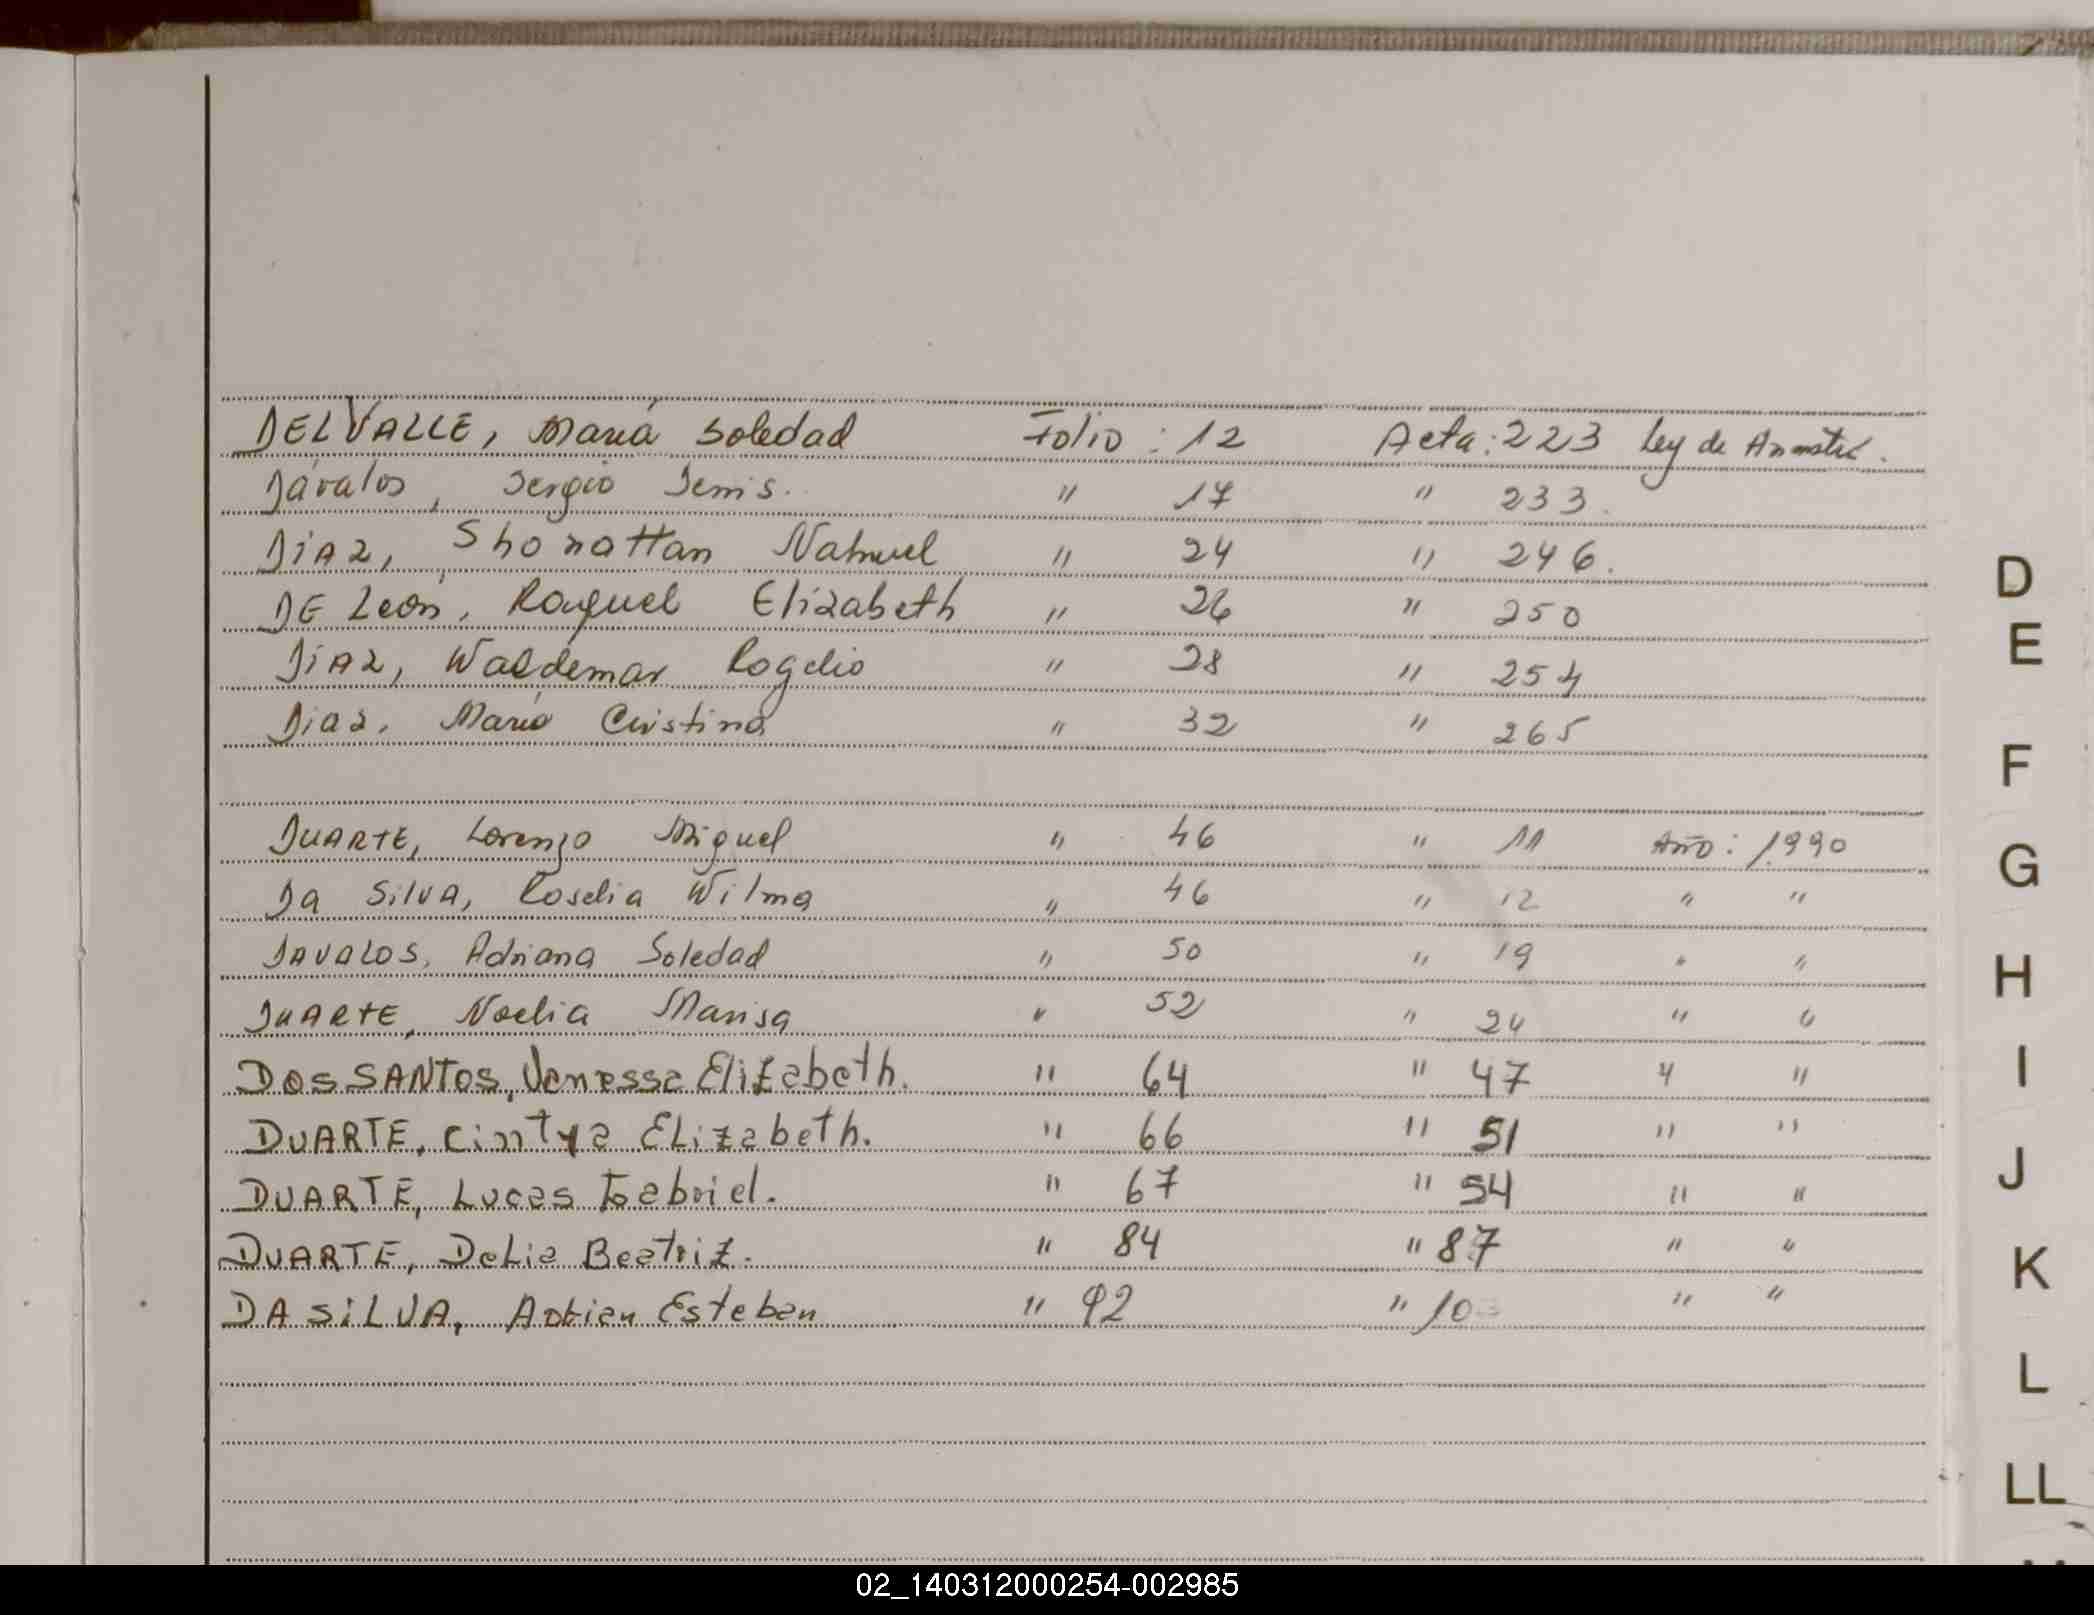 DELVALLE, María Soledad Folio : 12 Acta : 223 Ley de Amnistía.
Dávalos, Sergio Denis. " 17 " 233.
DíAz, Shonattan Nahuel " 24 " 246.
DE León, Raquel Elizabeth " 26 " 250
DíAz, Waldemar Rogelio " 28 " 254
Diaz, María Cristina " 32 " 265
DUARTE, Lorenzo Miguel " 46 " 11 Año : 1990
Da SilvA, Roselia Wilma " 46 " 12 " "
DAVALOS, Adriana Soledad " 50 " 19 " "
DUARTE, Noelia Marisa " 52 " 24 " "
DOSSANTOS, Vanessa Elizabeth. " 64 " 47 " "
DUARTE, Cintya Elizabeth. " 66 " 51 " "
DUARTE, Lucas Gabriel. " 67 " 54 " "
DUARTE, Delia Beatriz. " 84 " 87 " "
DA SiLVA, Adrian Esteban " 92 " " "
D
E
F
G
H
I
J
K
L
LL
02_140312000254-002985